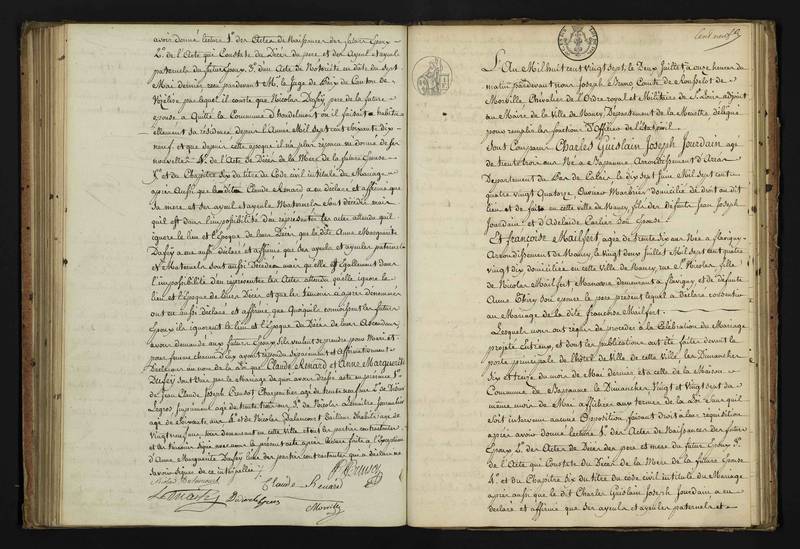 avoir donné lecture 1º. des Actes de Naissances des futurs Epoux
2º. de l'Acte qui Constate le Décès du pere et des Ayeul et ayeule
paternels du futur Epoux 3º. d'un Acte de Notoriété en date du Sept
Mai dernier reçu pardevant Mr. le Juge de Paix du Canton de
Vézelise par lequel il conste que Nicolas Dufey pere de la future
epouse a Quitté la Commune d'houdelmont ou il faisait habitu
ellement sa résidence depuis l'Année Mil Sept cent soixante dix
neuf et que depuis cette epoque il n'a plus reparu ni donné de ses
nouvelles 4º. de l'Acte de Décès de la Mere de la future Epouse
5º. et du Chapitre Six du titre du Code civil intitulé du Mariage
après Aussi que ledit Claude Renard a eu declaré et affirmé que
sa mere et ses ayeul et ayeule Maternels sont décédés mais
qu'il est dans l'impossibilité d'en representer les actes attendu qu'il
ignore le lieu et l'Epoque de leur Décès que la dite Anne Marguerite
Dufey a eu aussi déclaré et affirmé que ses ayeuls et ayeules paternels
et Maternels sont aussi Décédés mais qu'elle est Egallement dans
l'impossibilité d'en representer les Actes attendu qu'elle ignore le
lieu et l'Epoque de leur Décès et que les témoins ci après dénommés
ont eu aussi déclaré et affirmé que Quoiqu'ils connoissent les futurs
Epoux ils ignorent le lieu et l'Epoque du Décès de leurs Ascendans
avons demandé aux futurs Epoux s'ils veulent se prendre pour Mari et
pour femme chacun d'eux ayant répondu séparément et Affirmativement
Declarons au nom de la loi que Claude Renard et Anne Marguerite
Dufey sont Unis par le Mariage de quoi avons dressé acte en présence 1º.
de Jean Claude Crudot Charpentier agé de trente neuf ans 2º. de Didier
Legros Imprimeur agé de trente trois ans 3º. de Nicolas Lemaitre Journalier
agé de Soixante ans 4º. et de Nicolas
Vingt neuf ans tous demeurant en cette Ville et ont les parties contractantes
et les témoins signé avec nous le présent acte après lecture faite à l'Exception
d'Anne Marguerite Dufey l'une des parties contractantes qui a déclaré ne
savoir signer de ce interpellée
Claude Renard
Lemaitre
Didier Legros
Morville
Cent neuf
L'An Mil huit cent Vingt Sept, le Deux Juillet a onze heures du
matin pardevant nous Joseph Bruno Comte de Rousselot de
Morville, Chevalier de l'Ordre royal et Militaire de St. Louis adjoint
au Maire de la Ville de Nancy Département de la Meurthe, délégué
pour remplir les fonctions d'Officier de l'Etat civil.
Sont Comparus Charles Guislain Joseph Jourdain agé
de trente trois ans Né a Bapaume Arrondissement d'Arras
Departement du Pas de Calais le dix Sept Juin Mil Sept cent
quatre vingt Quatorze Ouvrier Marbrier domicilié de droit au dit
lieu et de fait en cette ville de Nancy, fils des défunts Jean Joseph
Jourdain et d'Adelaide Carlier son Epouse.
Et françoise Mailfert agée de trente six ans Née a flavigny
Arrondissement de Nancy, le vingt deux Juillet Mil Sept cent quatre
vingt dix domiciliée en cette Ville de Nancy, rue St. Nicolas, fille
de Nicolas Mailfert Manoeuvre demeurant a flavigny, et de défunte
Anne Thiry son epouse le pere present lequel a déclaré consentir
au Mariage de la dite françoise Mailfert
Lesquels nous ont réquis de procéder à la Célébration du Mariage
projeté entr'eux, et dont les publications ont été faites devant la
porte principale de l'hôtel de Ville de cette Ville, les Dimanches
Six et treize du mois de Mai dernier et a celle de la Maison
Commune de Bapaume les Dimanches Vingt et Vingt sept du
même mois de Mai affichées aux termes de la Loi sans qu'il
soit intervenu aucune Opposition, faisant droit a leur réquisition
après avoir donné lecture 1º. des Actes de Naissances des futurs
Epoux 2º. des Actes de Décès des pere et mere du futur Epoux 3º.
de l'Acte qui Constate le Décès de la Mere de la future Epouse
4º. et du Chapitre Six du titre du code civil intitulé du Mariage
après aussi que le dit Charles Guislain Joseph Jourdain a eu
déclaré et affirmé que ses ayeuls et ayeules paternels et